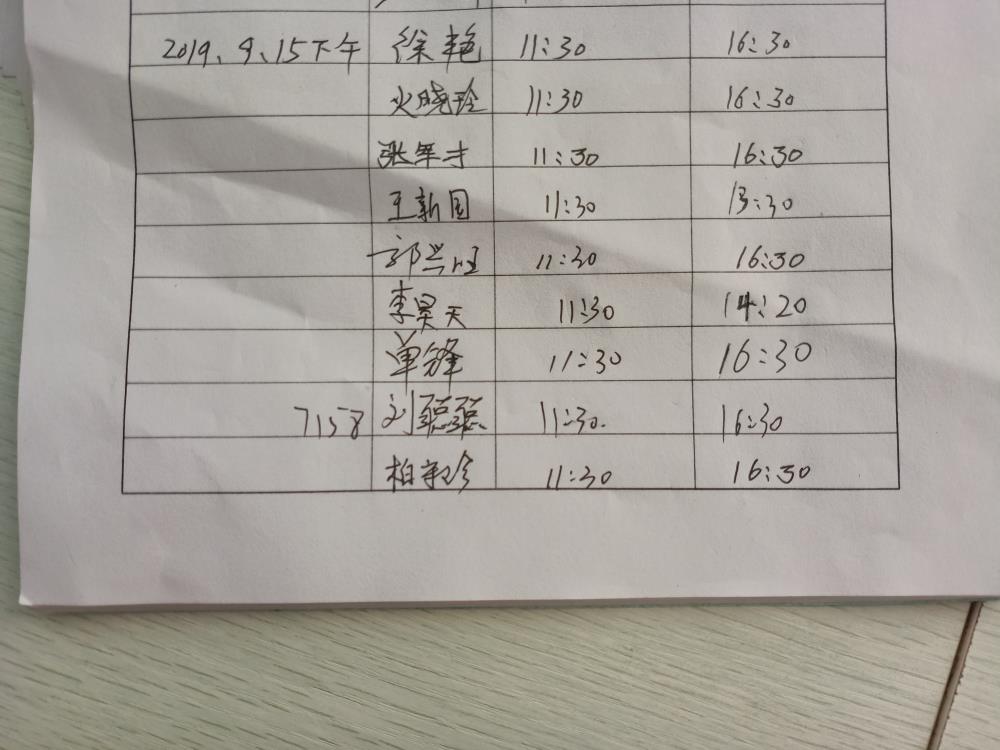 2019、9、15下午 徐艳 11:30 16:30
火晓玲 11:30 16:30
张军才 11:30 16:30
王新国 11:30 13:30
郭兴旺 11:30 16:30
李昊天 11:30 14:20
单锋 11:30 16:30
7158 刘聪聪 11:30. 16:30
柏 珍 11:30 16:30